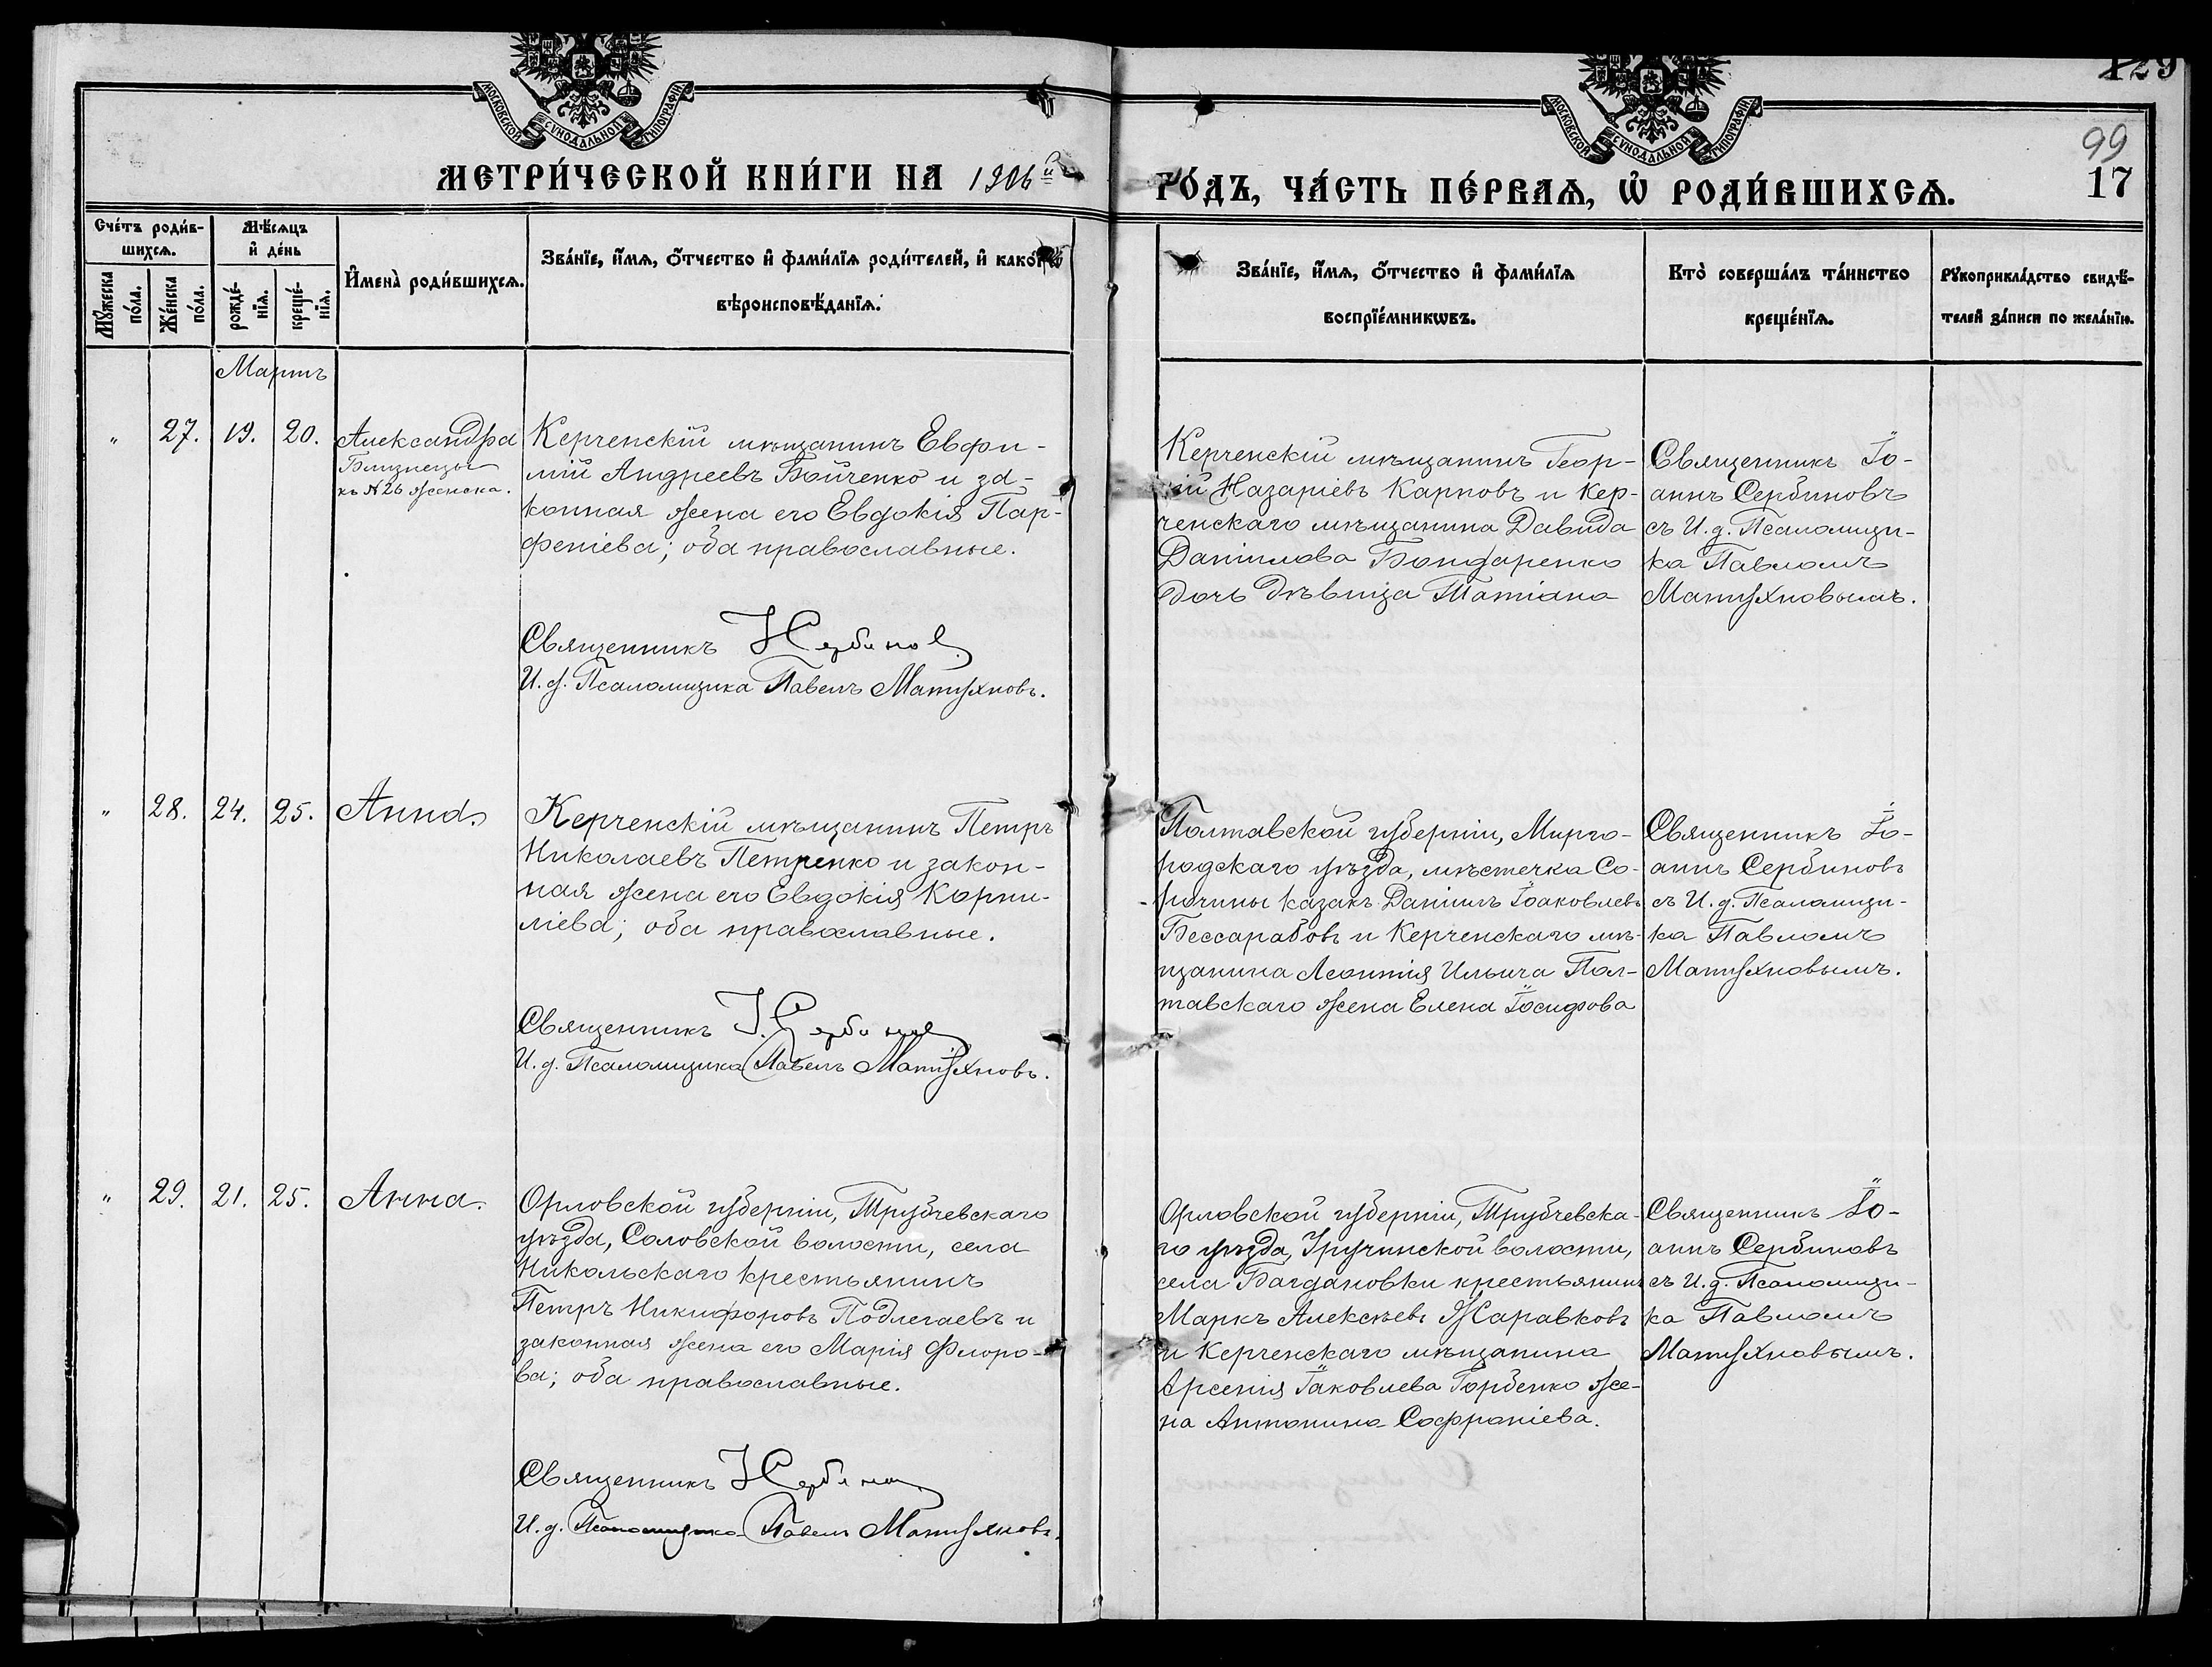 129
99
17
МОСКОВСКОЙ СѴНОДАЛЬНОЙ ТИПОГРАФІИ
МОСКОВСКОЙ СѴНОДАЛЬНОЙ ТИПОГРАФІИ
МЕТРИ́ЧЕСКОЙ КНИ́ГИ НА 1906й
ГО́ДЪ, ЧА́СТЬ ПЕ́РВАѦ, Ѡ҆ РОДИ́ВШИХСѦ.
Сче́тъ роди́в-
шихсѧ.
Мꙋ́жеска
по́ла.
Же́нска
по́ла.
Мѣ́сѧцъ
и҆ де́нь
рожде́-
нїѧ.
креще́-
нїѧ.
И҆мена̀ роди́вшихсѧ.
Зва́нїе, и҆́мѧ, ѻ҆́тчество и҆ фами́лїѧ роди́телей, и҆ како́гѡ
вѣроисповѣ́данїѧ.
Зва́нїе, и҆́мѧ, ѻ҆́тчество и҆ фами́лїѧ
воспрїе́мникѡвъ.
Кто̀ соверша́лъ та́инство
креще́нїѧ.
Рꙋкоприкла́дство свидѣ́-
телей за́писи по жела́нїю.
Мартъ
" 27. 19. 20.
Александра
Близнецы
къ № 26 женска.
Керченскій мѣщанинъ Евфи-
мій Андреевъ Бойченко и за-
конная жена его Евдокія Пар-
феніева; оба православные.
Священникъ І Сербинов
И. д. Псаломщика Павелъ Матухновъ.
Керченскій мѣщанинъ Геор-
гій Назаріевъ Карповъ и Кер-
ченскаго мѣщанина Давида
Даніилова Бондаренко
дочь дѣвица Татіана
Священникъ Іо-
аннъ Сербиновъ
съ И. д. Псаломщи-
ка Павломъ
Матухновымъ.
" 28. 24. 25.
Анна.
Керченскій мѣщанинъ Петръ
Николаевъ Петренко и закон-
ная жена его Евдокія Корни-
ліева; оба православные.
Священникъ І. Сербинов
И. д. Псаломщика Павелъ Матухновъ.
Полтавской губерніи, Мирго-
родскаго уѣзда, мѣстечка Со-
рочины казакъ Даніилъ Іоаковлевъ
Бессарабовъ и Керченскаго мѣ-
щанина Леонтія Ильича Пол-
тавскаго жена Елена Іосифова
Священникъ Іо-
аннъ Сербиновъ
съ И. д. Псаломщи-
ка Павломъ
Матухновымъ.
" 29. 21. 25.
Анна.
Орловской губерніи, Трубчевскаго
уѣзда, Соловской волости, села
Никольскаго крестьянинъ
Петръ Никифоровъ Подлегаевъ и
законная жена его Марія Флоро-
ва; оба православные.
Священникъ І Сербинов
И. д. Псаломщика Павелъ Матухновъ.
Орловской губерніи, Трубчевска-
го уѣзда, Уручинской волости,
села Багдановки крестьянинъ
Маркъ Алексѣевъ Журавковъ
и Керченскаго мѣщанина
Арсенія Іаковлева Горбенко же-
на Антонина Софроніева.
Священникъ Іо-
аннъ Сербиновъ
съ И. д. Псаломщи-
ка Павломъ
Матухновымъ.